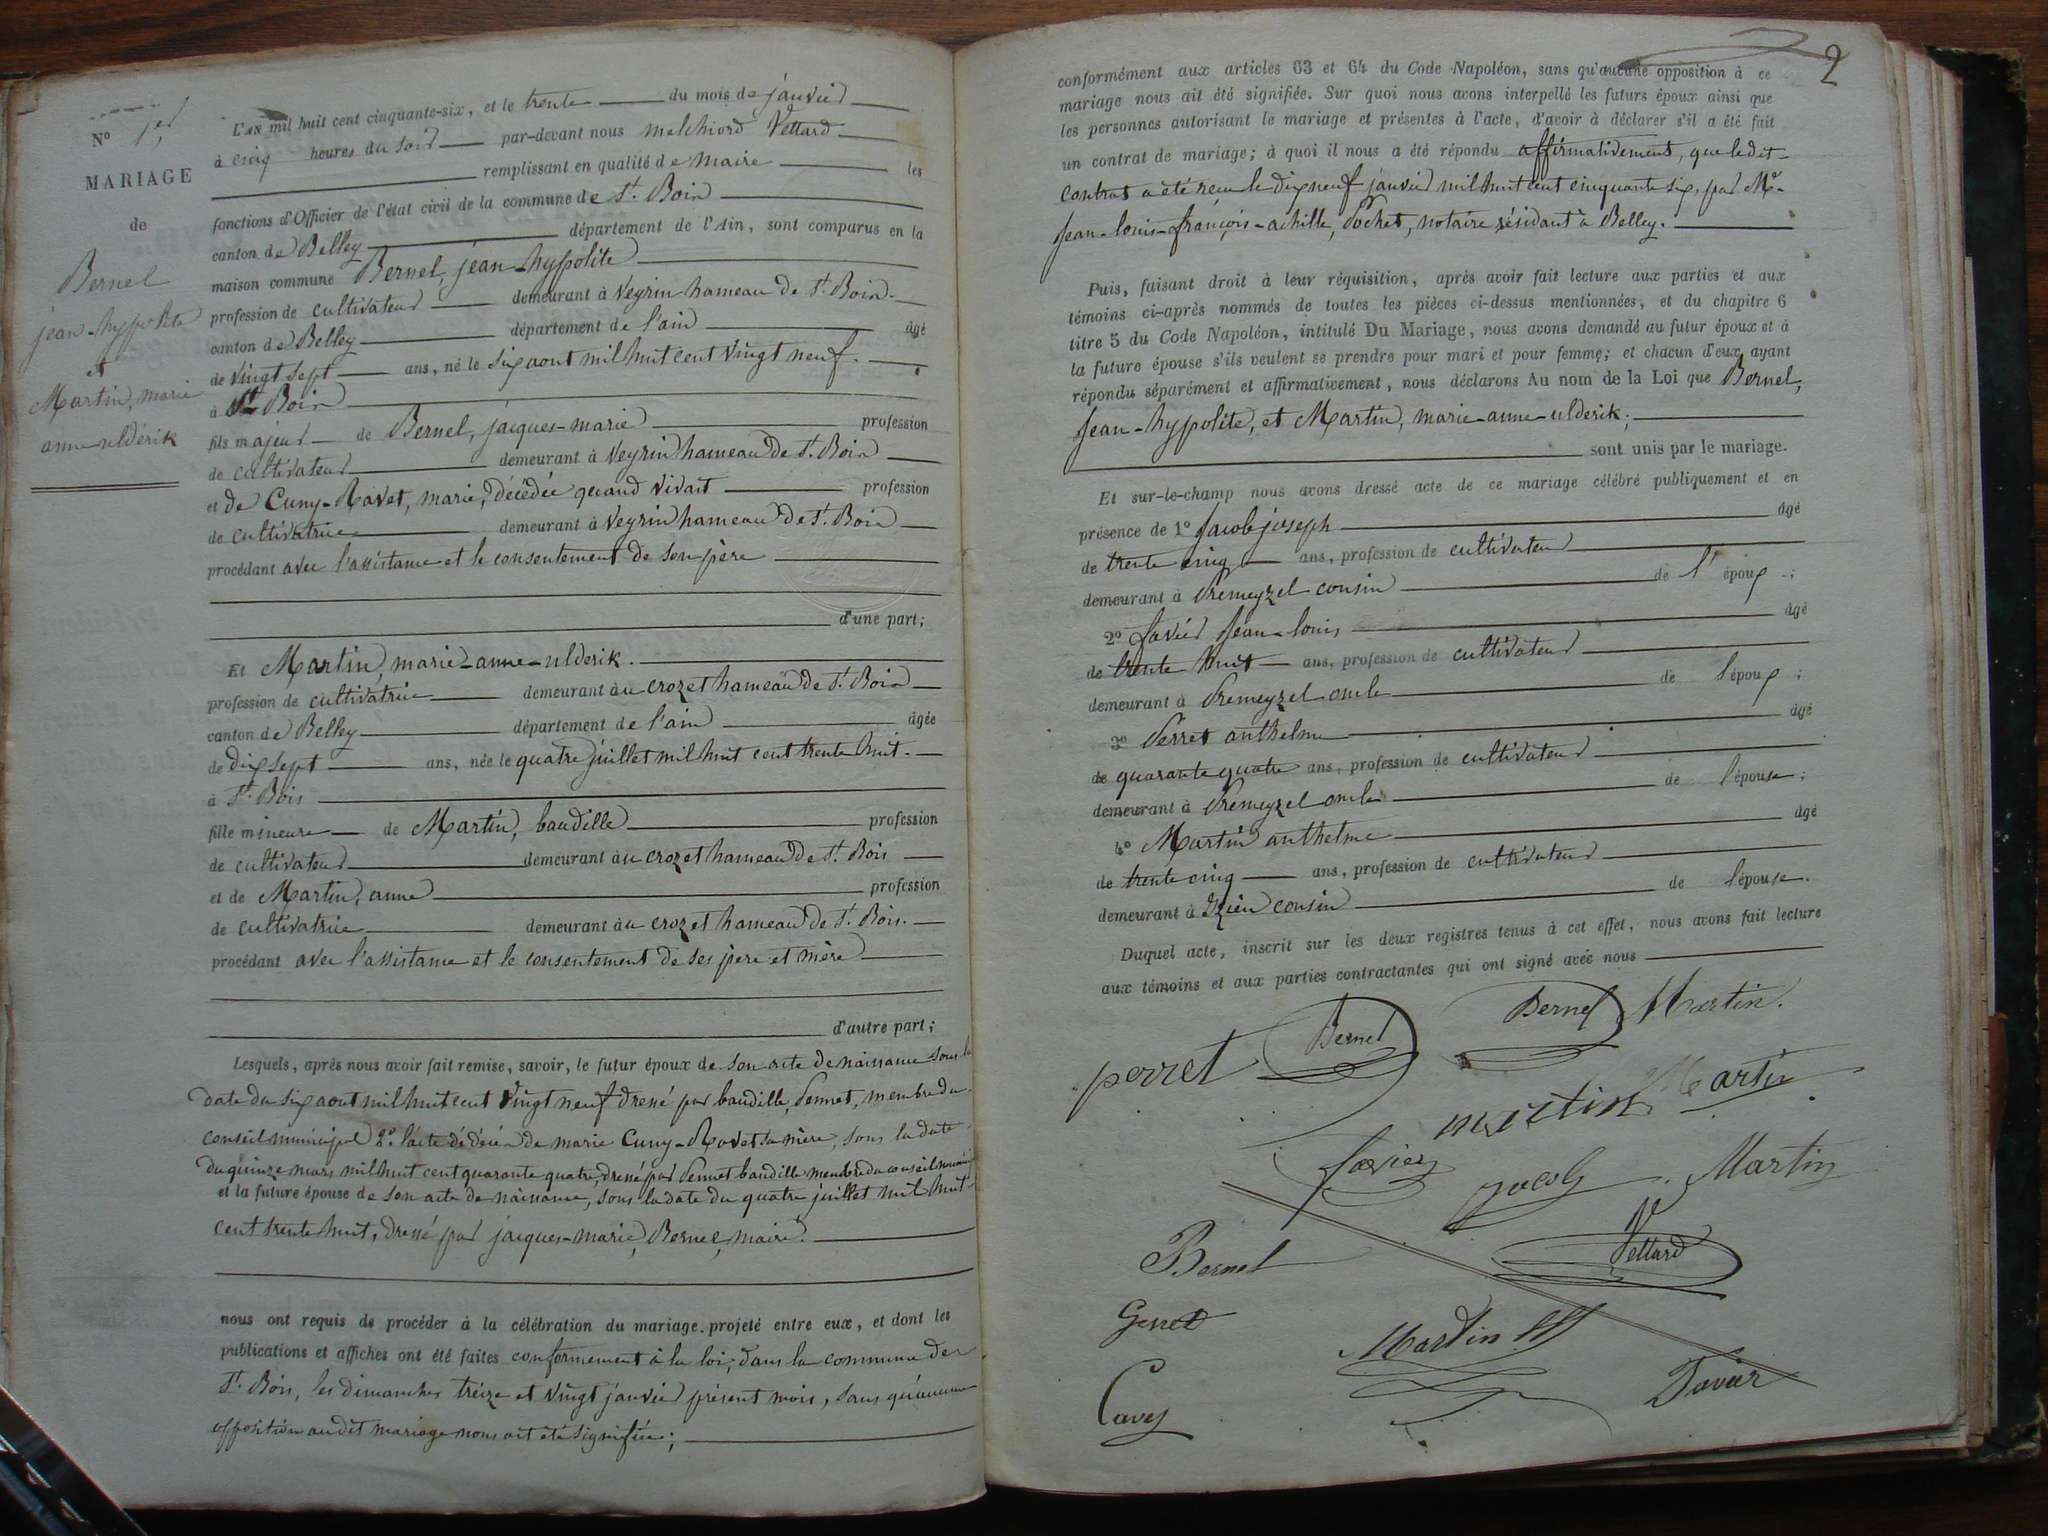 N° 1er
MARIAGE
de
Bernel
jean-hypolite
et
Martin, marie
anne-uldérik
L'AN mil huit cent cinquante-six, et le trente du mois de janvier
à cinq heures du soir par-devant nous melchior Vettard
remplissant en qualité de maire les
fonctions d'Officier de l'état civil de la commune de St. Bois
canton de Belley département de l'Ain, sont comparus en la
maison commune Bernel, jean-hypolite
profession de cultivateur demeurant à Veyrin hameau de St. Bois.
canton de Belley département de l'ain âgé
de vingt sept ans, né le six aout mil huit cent vingt neuf.
à St. Bois
fils majeur de Bernel, jacques-marie profession
de cultivateur demeurant à Veyrin hameau de St. Bois
et de Cuny-Ravet, marie, décédée quand vivait profession
de cultivatrice demeurant à Veyrin hameau de St. Bois
procédant avec l'assistance et le consentement de son père
d'une part;
Et Martin, marie-anne-ulderik.
profession de cultivatrice demeurant au crozet hameau de St. Bois
canton de Belley département de l'ain âgée
de dix sept ans, née le quatre juillet mil huit cent trente huit.
à St. Bois
fille mineure de Martin, baudille profession
de cultivateur demeurant au crozet hameau de St. Bois
et de Martin, anne profession
de cultivatrice demeurant au crozet hameau de St. Bois.
procédant avec l'assistance et le consentement de ses père et mère
d'autre part;
Lesquels, après nous avoir fait remise, savoir, le futur époux de son acte de naissance sous la
date du six aout mil huit cent vingt neuf dressé par baudille, Pennet, membre du
conseil municipal 2°. l'acte de décès de marie Cuny-Ravet sa mère, sous la date
du quinze mars mil huit cent quarante quatre, dressé par Pennet baudille membre du conseil municipal
et la future épouse de son acte de naissance, sous la date du quatre juillet mil huit
cent trente huit, dressé par jacques-marie, Bernel, maire.
nous ont requis de procéder à la célébration du mariage projeté entre eux, et dont les
publications et affiches ont été faites conformement à la loi, dans la commune de
St. Bois, les dimanches treize et vingt janvier présent mois, sans qu'aucune
opposition audit mariage nous ait été signifiée;
2
conformément aux articles 63 et 64 du Code Napoléon, sans qu'aucune opposition à ce
mariage nous ait été signifiée. Sur quoi nous avons interpellé les futurs époux ainsi que
les personnes autorisant le mariage et présentes à l'acte, d'avoir à déclarer s'il a été fait
un contrat de mariage; à quoi il nous a été répondu affirmativement, que ledit
contrat a été reçu le dix neuf janvier mil huit cent cinquante six, par Me.
Jean-louis-françois-achille, Pochet, notaire résidant à Belley.
Puis, faisant droit à leur réquisition, après avoir fait lecture aux parties et aux
témoins ci-après nommés de toutes les pièces ci-dessus mentionnées, et du chapitre 6
titre 5 du Code Napoléon, intitulé Du Mariage, nous avons demandé au futur époux et à
la future épouse s'ils veulent se prendre pour mari et pour femme; et chacun d'eux ayant
répondu séparément et affirmativement, nous déclarons Au nom de la Loi que Bernel,
Jean-hypolite, et Martin, marie-anne-ulderik;
sont unis par le mariage.
Et sur-le-champ nous avons dressé acte de ce mariage célébré publiquement et en
présence de 1° Jacob joseph âgé
de trente cinq ans, profession de cultivateur
demeurant à Premeyzel cousin de l'époux;
2° Javier Jean-louis âgé
de trente huit ans, profession de cultivateur
demeurant à Premeyzel oncle de l'époux;
3° Perret anthelme âgé
de quarante quatre ans, profession de cultivateur
demeurant à Premeyzel oncle de l'épouse;
4° Martin anthelme âgé
de trente cinq ans, profession de cultivateur
demeurant à Izieu cousin de l'épouse.
Duquel acte, inscrit sur les deux registres tenus à cet effet, nous avons fait lecture
aux témoins et aux parties contractantes qui ont signé avec nous
perret Bernel Bernel Martin.
martin Martin
Javier jacob Martin
Bernel Vettard
Genet Martin
Cavey Javier